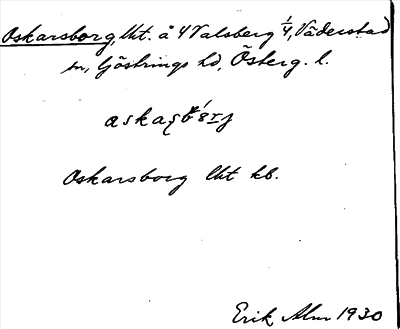 Oskarsborg, lht. å 4 Valsberg 1/4, Väderstad
sn, Göstrings hd, Österg. l.
Oskarsborg lht kb.
Erik Alm 1930